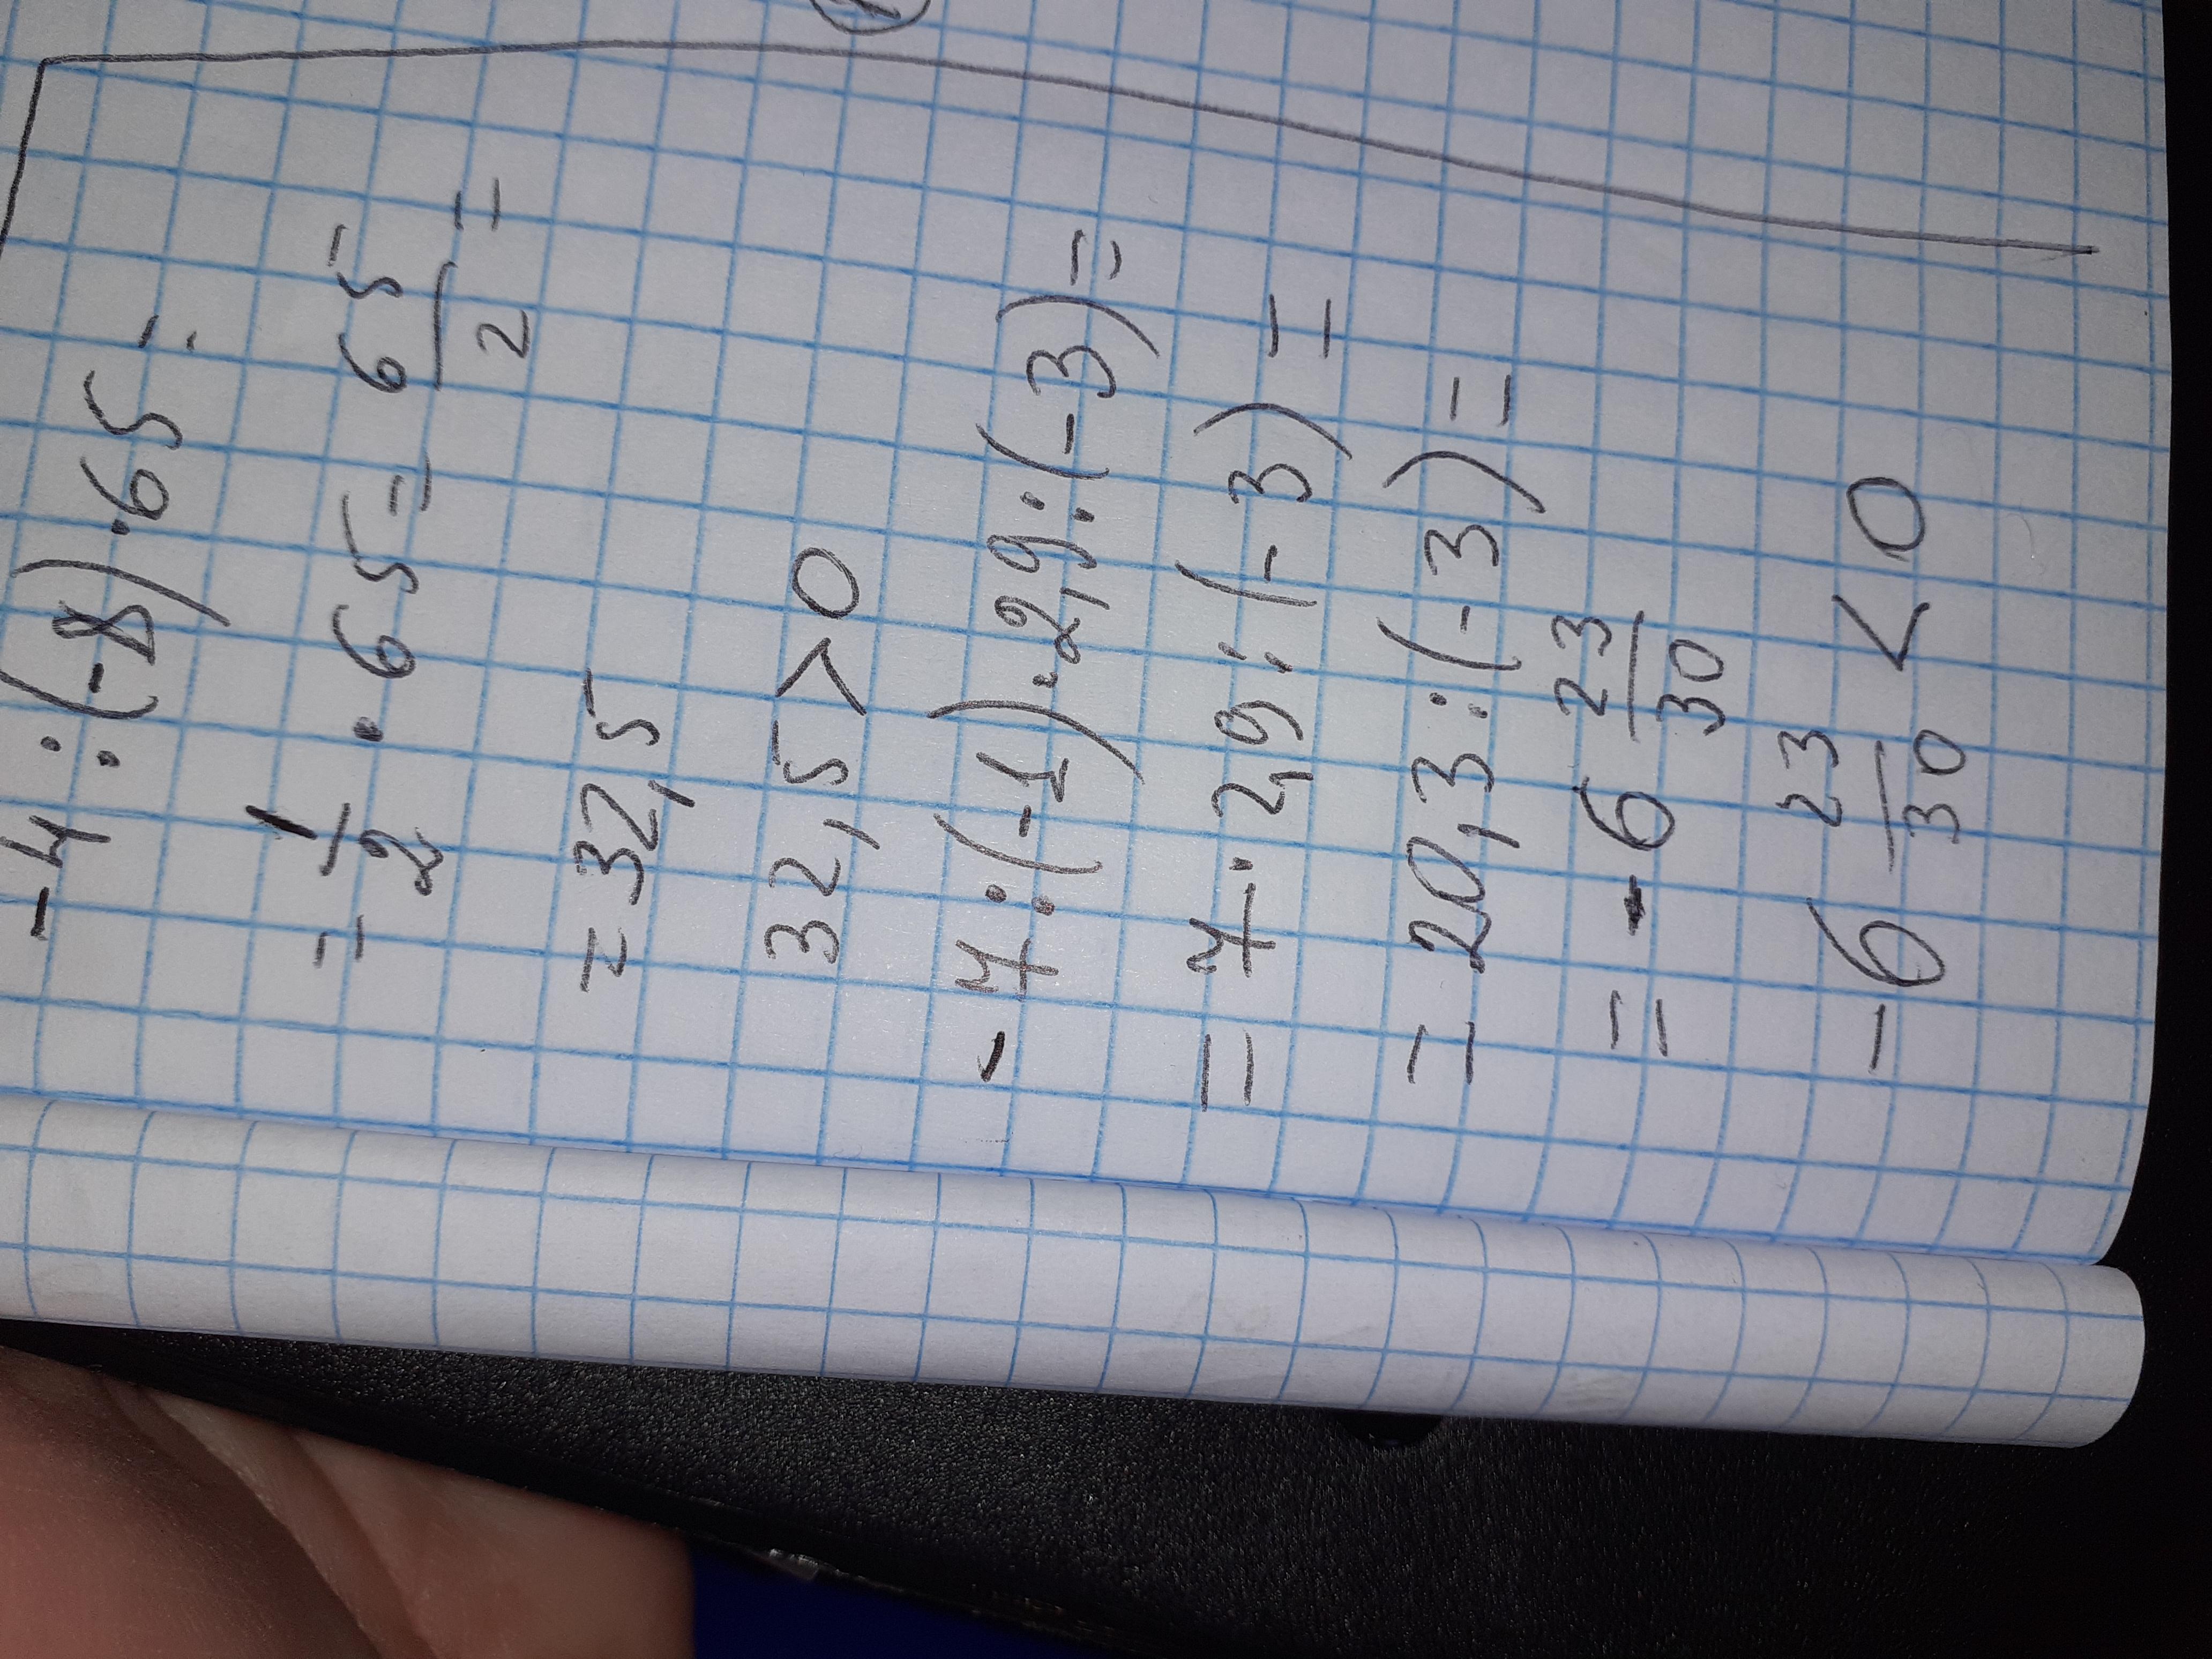 -4:(-8)·65=
=1/2·65=65/2=
=32,5
32,5>0
-7:(-1)·2,9:(-3)=
=7·2,9:(-3)=
=20,3:(-3)=
=-6 23/30
-6 23/30<0